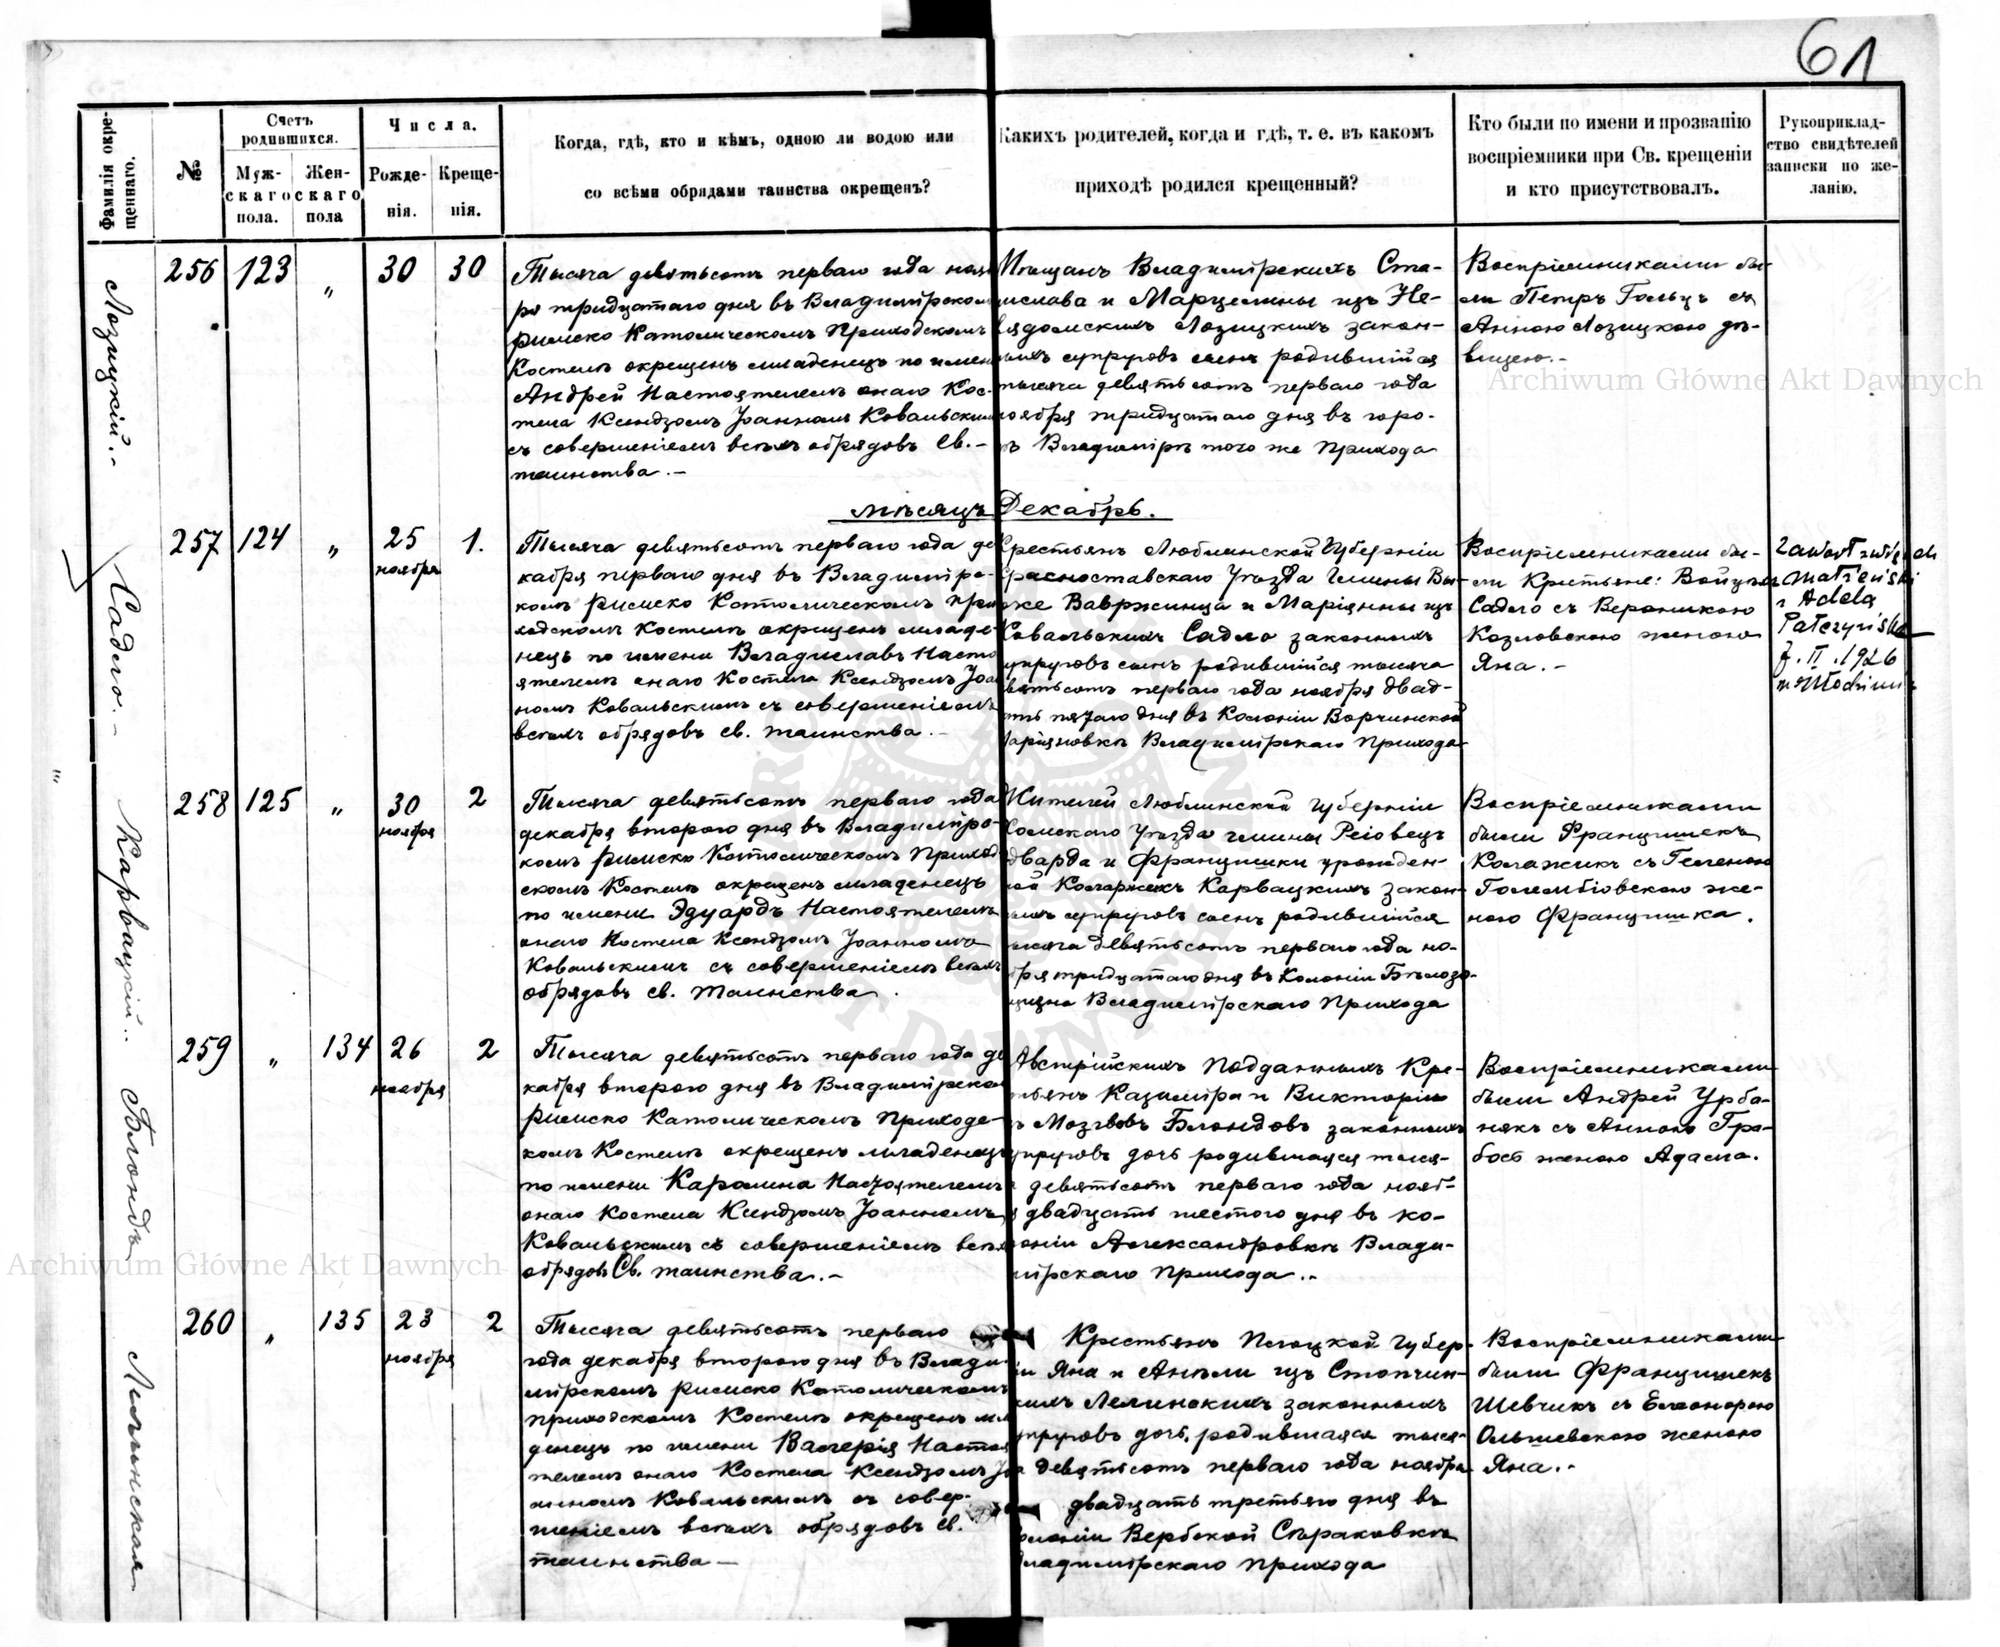 61
Фамилія окре-
щеннаго.
№
Счетъ
родившихся.
Муж-
скаго
пола.
Жен-
скаго
пола
Числа.
Рожде-
нія.
Креще-
нія.
Когда, гдѣ, кто и кѣмъ, одною ли водою или
со всѣми обрядами таинства окрещенъ?
Какихъ родителей, когда и гдѣ, т. е. въ какомъ
приходѣ родился крещенный?
Кто были по имени и прозванію
воспріемники при Св. крещеніи
и кто присутствовалъ.
Рукоприклад-
ство свидѣтелей
записки по же-
ланію.
Лозицкій.-
256 123 " 30 30
Тысяча девятьсотъ перваго года нояб
ря тридцатаго дня въ Владимірском
Римско Католическомъ Приходскомъ
Костелѣ окрещенъ младенецъ по имен
Андрей Настоятелемъ онаго Кос-
тела Ксендзомъ Іоанномъ Ковальским
съ совершеніемъ всѣхъ обрядовъ Св.-
таинства.-
Мѣщанъ Владимірскихъ Ста-
ислава и Марцелины изъ Не-
вядомскихъ Лозицкихъ закон-
ныхъ супруговъ сынъ родившійся
тысяча девятьсотъ перваго года
ноября тридцатаго дня въ горо-
ѣ Владимірѣ того же Прихода
Воспріемниками бы-
ли Петръ Гольцъ съ
Анною Лозицкою дѣ-
вицею.-
мѣсяцъ Декабрь.
Садло.-
257 124 " 25 1.
ноября
Тысяча девятьсотъ перваго года де
кабря перваго дня въ Владимірс-
комъ Римско Католическомъ При
ходскомъ Костелѣ окрещенъ младе-
нецъ по имени Владиславъ Насто
ятелемъ онаго Костела Ксендзомъ Іоа
номъ Ковальскимъ съ совершеніемъ
всѣхъ обрядовъ св. таинства.-
Крестьянъ Люблинской Губерніи
Красноставскаго Уѣзда Гмины Вы-
же Вавржинца и Маріянны изъ
Ковальскихъ Садло законныхъ
супруговъ сынъ родившійся тысяча
вятьсотъ перваго года ноября двад-
ть пятаго дня въ Колоніи Ворчинской
Маріяновкѣ Владимірскаго Прихода
Воспріемниками бы-
ли Крестьяне: Войцѣхъ
Садло съ Вероникою
Козловскою женою
Яна.-
zawarł związek
małżeński
z Adelą
7. II. 1926
Карвацкій..
258 125 " 30 2
ноября
Тысяча девятьсотъ перваго года
декабря втораго дня въ Владимірс-
комъ Римско Католическомъ Приход
скомъ Костелѣ окрещенъ младенецъ
по имени Эдуардъ Настоятелемъ
онаго Костела Ксендзомъ Іоанномъ
Ковальскимъ съ совершеніемъ всѣхъ
обрядовъ св. таинства.
Жителей Люблинской Губерніи
Холмскаго Уѣзда гмины Реіовецъ
дварда и Францишки урожден-
ной Коларжикъ Карвацкихъ закон-
ныхъ супруговъ сынъ родившійся
тысяча девятьсотъ перваго года но-
бря тридцатаго дня въ Колоніи Бѣлозо-
вщина Владимірскаго Прихода
Воспріемниками
были Францишекъ
Колажикъ съ Геленою
Голембіовскою же-
ною Францишка.
Блондъ
259 " 134 26 2
ноября
Тысяча девятьсотъ перваго года де
кабря втораго дня въ Владимірско
Римско Католическомъ Приходс-
комъ Костелѣ окрещенъ младенецъ
по имени Каролина Настоятелемъ
онаго Костела Ксендзомъ Іоанномъ
Ковальскимъ съ совершеніемъ всѣх
обрядовъ Св. таинства.-
Австрійскихъ Подданныхъ Кре-
тьянъ Казиміра и Викторіи
ъ Мозговъ Блондовъ законныхъ
супруговъ дочь родившаяся тыся-
девятьсотъ перваго года нояб-
двадцать шестого дня въ ко-
лоніи Александровкѣ Влади-
мірскаго Прихода.-
Воспріемниками
были Андрей Урба-
някъ съ Анною Гра-
босъ женою Адама.
Лелинская
260 " 135 23 2
ноября
Тысяча девятьсотъ перваго
года декабря втораго дня въ Влади-
мірскомъ Римско Католическомъ
Приходскомъ Костелѣ окрещенъ мла
денецъ по имени Валерія Насто
телемъ онаго Костела Ксендзомъ Іо
анномъ Ковальскимъ съ совер-
шеніемъ всѣхъ обрядовъ св.
таинства-
Крестьянъ Плоцкой Губер-
іи Яна и Анѣли изъ Стопчин-
скихъ Лелинскихъ законныхъ
супруговъ дочь, родившаяся тыся-
девятьсотъ перваго года ноября
двадцать третьяго дня въ
олоніи Вербской Сѣраковкѣ
Владимірскаго Прихода
Воспріемниками
были Францишекъ
Шевчикъ съ Елеонорою
Ольшевскою женою
Яна.-
Archiwum Główne Akt Dawnych
Archiwum Główne Akt Dawnych